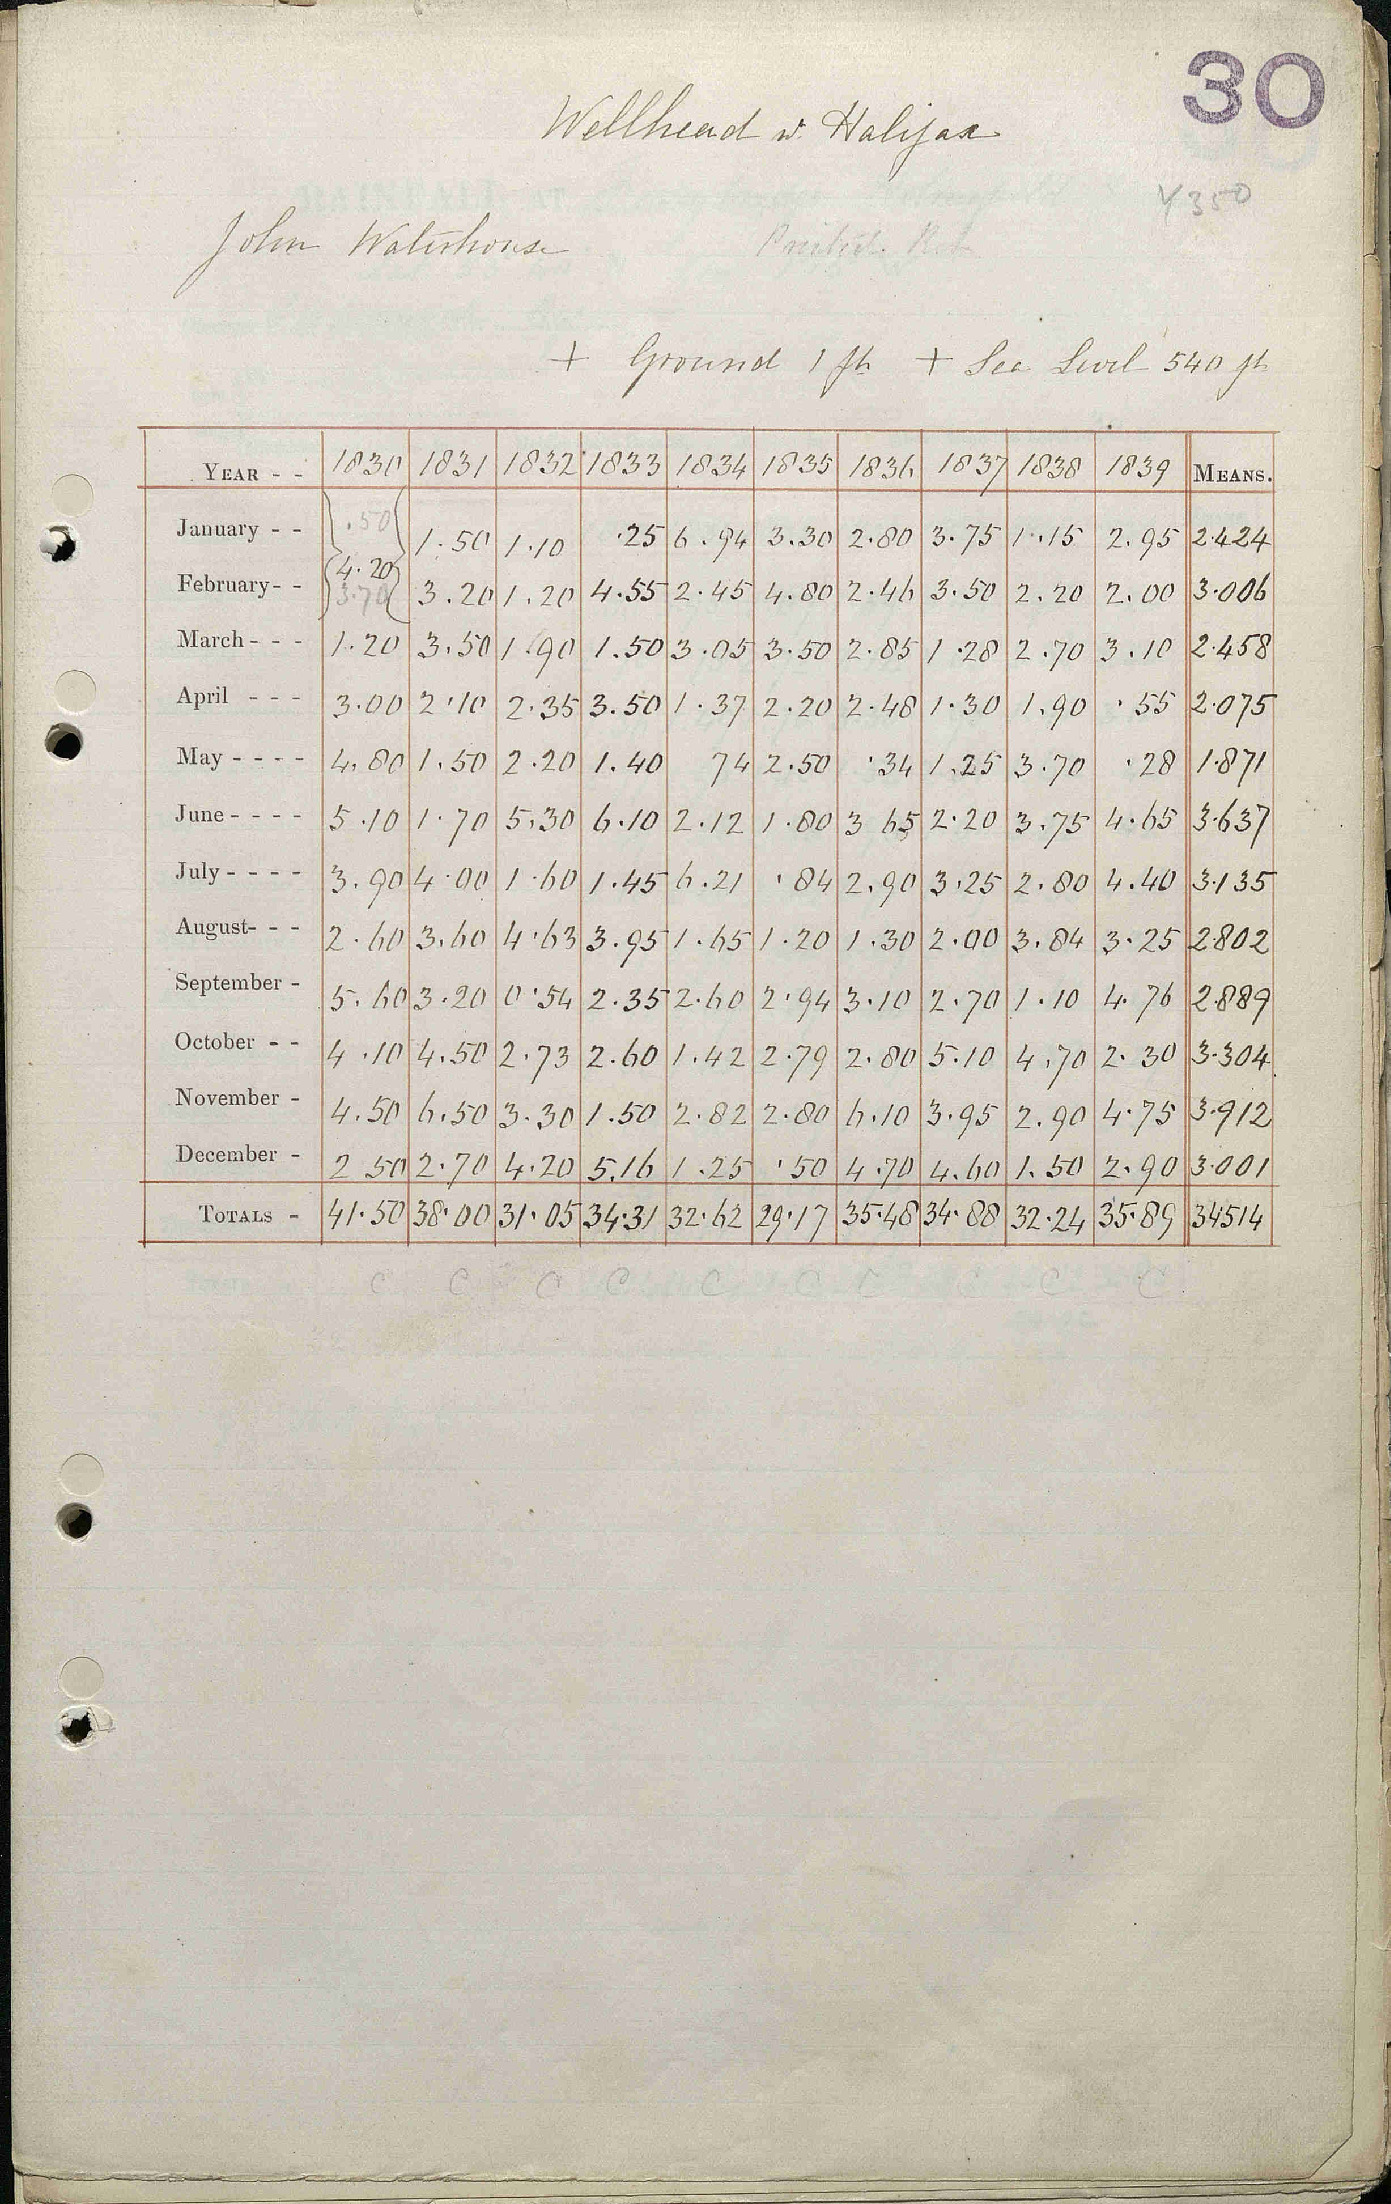 30
Wellhead w. Halifax
4350
John Waterhouse
+ Ground 1 ft + Sea Level 540 ft
YEAR - - 1830 1831 1832 1833 1834 1835 1836 1837 1838 1839 MEANS.
January - - .50 1.50 1.10 .25 6.94 3.30 2.80 3.75 1.15 2.95 2.424
4.20
February - - 3.70 3.20 1.20 4.55 2.45 4.80 2.46 3.50 2.20 2.00 3.006
March - - - 1.20 3.50 1.90 1.50 3.05 3.50 2.85 1.28 2.70 3.10 2.458
April - - - 3.00 2.10 2.35 3.50 1.37 2.20 2.48 1.30 1.90 .55 2.075
May - - - - 4.80 1.50 2.20 1.40 74 2.50 .34 1.25 3.70 .28 1.871
June - - - - 5.10 1.70 5.30 6.10 2.12 1.80 3 65 2.20 3.75 4.65 3.637
July - - - - 3.90 4.00 1.60 1.45 6.21 .84 2.90 3.25 2.80 4.40 3.135
August - - - 2.60 3.60 4.63 3.95 1.65 1.20 1.30 2.00 3.84 3.25 2.802
September - 5.60 3.20 0.54 2.35 2.60 2.94 3.10 2.70 1.10 4.76 2.889
October - - 4.10 4.50 2.73 2.60 1.42 2.79 2.80 5.10 4.70 2.30 3.304
November - 4.50 6.50 3.30 1.50 2.82 2.80 6.10 3.95 2.90 4.75 3.912
December - 2 50 2.70 4.20 5.16 1.25 .50 4.70 4.60 1.50 2.90 3.001
TOTALS - 41.50 38.00 31.05 34.31 32.62 29.17 35.48 34.88 32.24 35.89 34514
C C C C C C C C C C